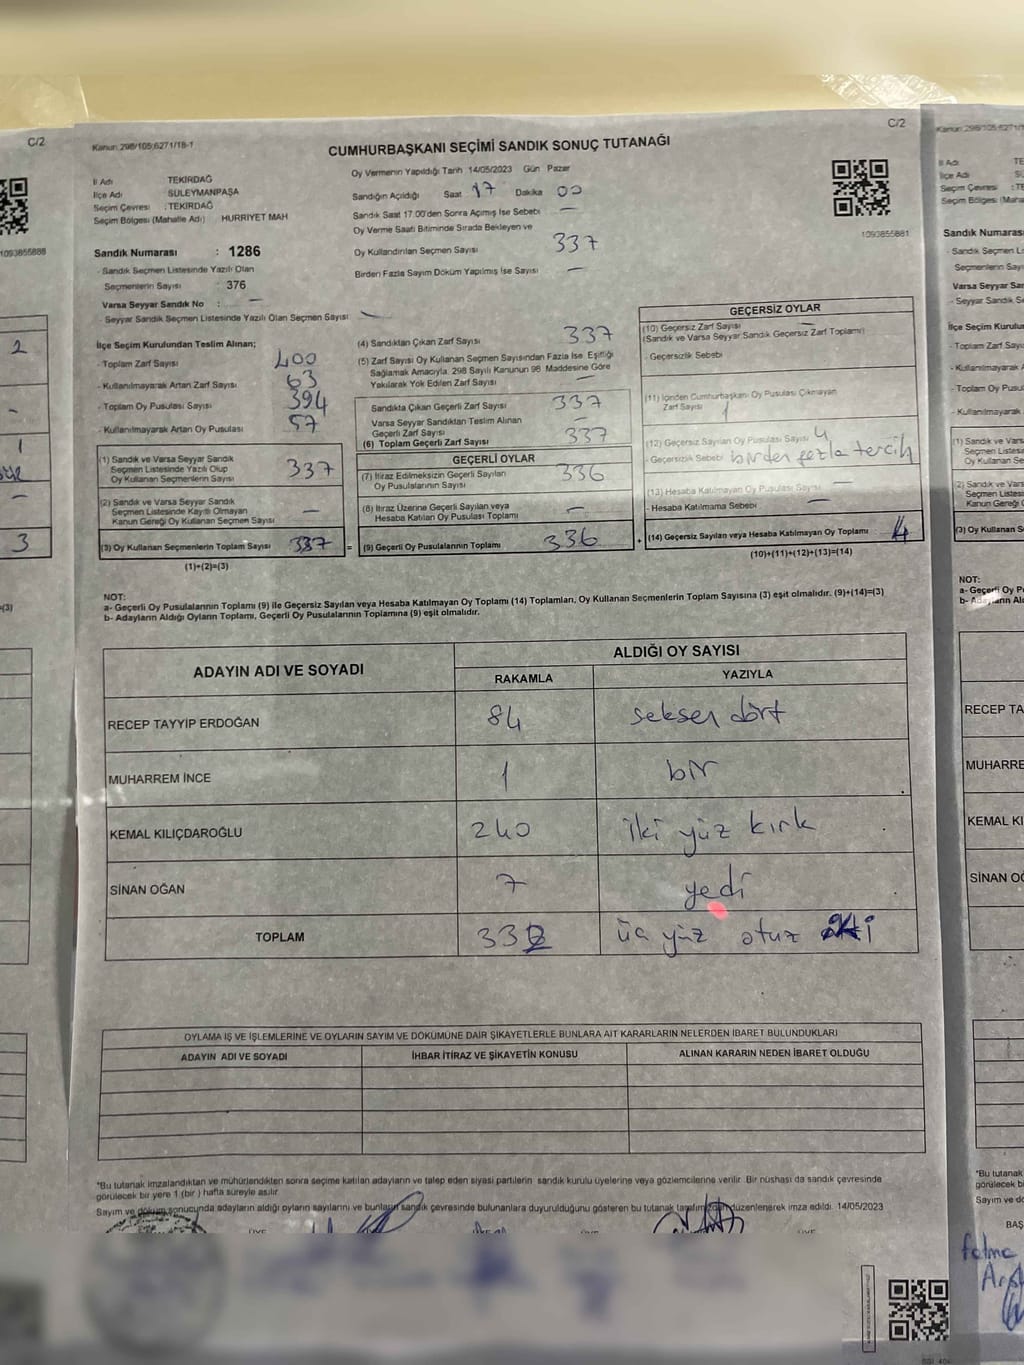 C/2
Kanun: 298/105;6271/18-1
C/2
CUMHURBAŞKANI SEÇİMİ SANDIK SONUÇ TUTANAĞI
İl Adı TEKİRDAĞ
İlçe Adı SÜLEYMANPAŞA
Seçim Çevresi : TEKİRDAĞ
Seçim Bölgesi (Mahalle Adı) HURRİYET MAH
Oy Vermenin Yapıldığı Tarih 14/05/2023 Gün Pazar
Sandığın Açıldığı Saat 17 Dakika 00
Sandık Saat 17.00'den Sonra Açılmış İse Sebebi —
Oy Verme Saati Bitiminde Sırada Bekleyen ve
Oy Kullandırılan Seçmen Sayısı 337
Birden Fazla Sayım Döküm Yapılmış İse Sayısı —
1093855881
1093855888
Sandık Numarası : 1286
- Sandık Seçmen Listesinde Yazılı Olan
Seçmenlerin Sayısı : 376
Varsa Seyyar Sandık No : —
- Seyyar Sandık Seçmen Listesinde Yazılı Olan Seçmen Sayısı —
İlçe Seçim Kurulundan Teslim Alınan;
- Toplam Zarf Sayısı 400
- Kullanılmayarak Artan Zarf Sayısı 63
- Toplam Oy Pusulası Sayısı 394
- Kullanılmayarak Artan Oy Pusulası 57
(1) Sandık ve Varsa Seyyar Sandık
Seçmen Listesinde Yazılı Olup
Oy Kullanan Seçmenlerin Sayısı 337
(2) Sandık ve Varsa Seyyar Sandık
Seçmen Listesinde Kayıtlı Olmayan
Kanun Gereği Oy Kullanan Seçmen Sayısı —
(3) Oy Kullanan Seçmenlerin Toplam Sayısı 337
(1)+(2)=(3)
(4) Sandıktan Çıkan Zarf Sayısı 337
(5) Zarf Sayısı Oy Kullanan Seçmen Sayısından Fazla İse, Eşitliği
Sağlamak Amacıyla, 298 Sayılı Kanunun 98. Maddesine Göre
Yakılarak Yok Edilen Zarf Sayısı —
Sandıkta Çıkan Geçerli Zarf Sayısı 337
Varsa Seyyar Sandıktan Teslim Alınan
Geçerli Zarf Sayısı —
(6) Toplam Geçerli Zarf Sayısı 337
GEÇERLİ OYLAR
(7) İtiraz Edilmeksizin Geçerli Sayılan
Oy Pusulalarının Sayısı 336
(8) İtiraz Üzerine Geçerli Sayılan veya
Hesaba Katılan Oy Pusulası Toplamı —
= (9) Geçerli Oy Pusulalarının Toplamı 336
GEÇERSİZ OYLAR
(10) Geçersiz Zarf Sayısı —
(Sandık ve Varsa Seyyar Sandık Geçersiz Zarf Toplamı)
- Geçersizlik Sebebi
(11) İçinden Cumhurbaşkanı Oy Pusulası Çıkmayan
Zarf Sayısı 1
(12) Geçersiz Sayılan Oy Pusulası Sayısı 4
- Geçersizlik Sebebi birden fazla tercih
(13) Hesaba Katılmayan Oy Pusulası Sayısı —
- Hesaba Katılmama Sebebi —
+ (14) Geçersiz Sayılan veya Hesaba Katılmayan Oy Toplamı 4
(10)+(11)+(12)+(13)=(14)
NOT:
a- Geçerli Oy Pusulalarının Toplamı (9) ile Geçersiz Sayılan veya Hesaba Katılmayan Oy Toplamı (14) Toplamları, Oy Kullanan Seçmenlerin Toplam Sayısına (3) eşit olmalıdır. (9)+(14)=(3)
b- Adayların Aldığı Oyların Toplamı, Geçerli Oy Pusulalarının Toplamına (9) eşit olmalıdır.
ADAYIN ADI VE SOYADI
ALDIĞI OY SAYISI
RAKAMLA YAZIYLA
RECEP TAYYİP ERDOĞAN 84 seksen dört
MUHARREM İNCE 1 bir
KEMAL KILIÇDAROĞLU 240 iki yüz kırk
SİNAN OĞAN 7 yedi
TOPLAM 332 üç yüz otuz iki
OYLAMA İŞ VE İŞLEMLERİNE VE OYLARIN SAYIM VE DÖKÜMÜNE DAİR ŞİKAYETLERLE BUNLARA AİT KARARLARIN NELERDEN İBARET BULUNDUKLARI
ADAYIN ADI VE SOYADI İHBAR İTİRAZ VE ŞİKAYETİN KONUSU ALINAN KARARIN NEDEN İBARET OLDUĞU
*Bu tutanak imzalandıktan ve mühürlendikten sonra seçime katılan adayların ve talep eden siyasi partilerin sandık kurulu üyelerine veya gözlemcilerine verilir. Bir nüshası da sandık çevresinde
görülecek bir yere 1 (bir) hafta süreyle asılır.
Sayım ve döküm sonucunda adayların aldığı oyların sayılarını ve bunların sandık çevresinde bulunanlara duyurulduğunu gösteren bu tutanak düzenlenerek imza edildi. 14/05/2023